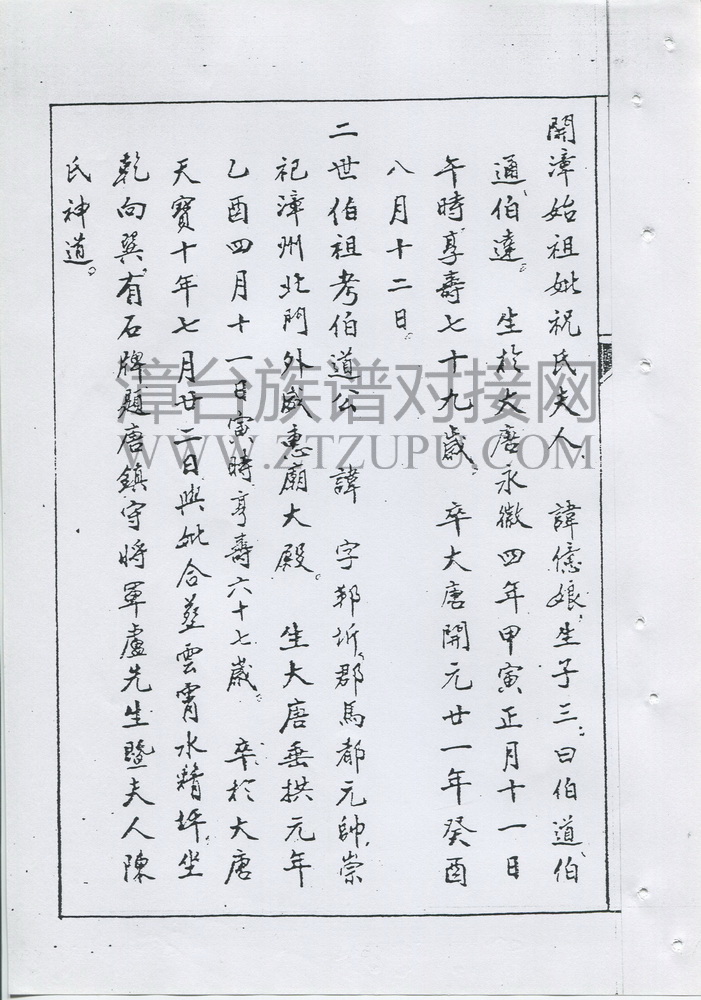 開漳始祖妣祝氏夫人、諱億娘、生子三、曰伯道、伯
通、伯達。 生於大唐永徽四年甲寅正月十一日
午時、享壽七十九歲、 卒大唐開元廿一年癸酉
八月十二日。
二世伯祖考伯道公 諱 字 郡馬都元帥、崇
祀漳州北門外威惠廟大殿。 生大唐垂拱元年
乙酉四月十一日寅時、享壽六十七歲、 卒於大唐
天寶十年七月廿二日與妣合塟雲霄水精坪、坐
乾向巽、有石牌題唐鎮守將軍盧先生暨夫人陳
氏神道。
漳台族谱对接网
WWW.ZTZUPU.COM